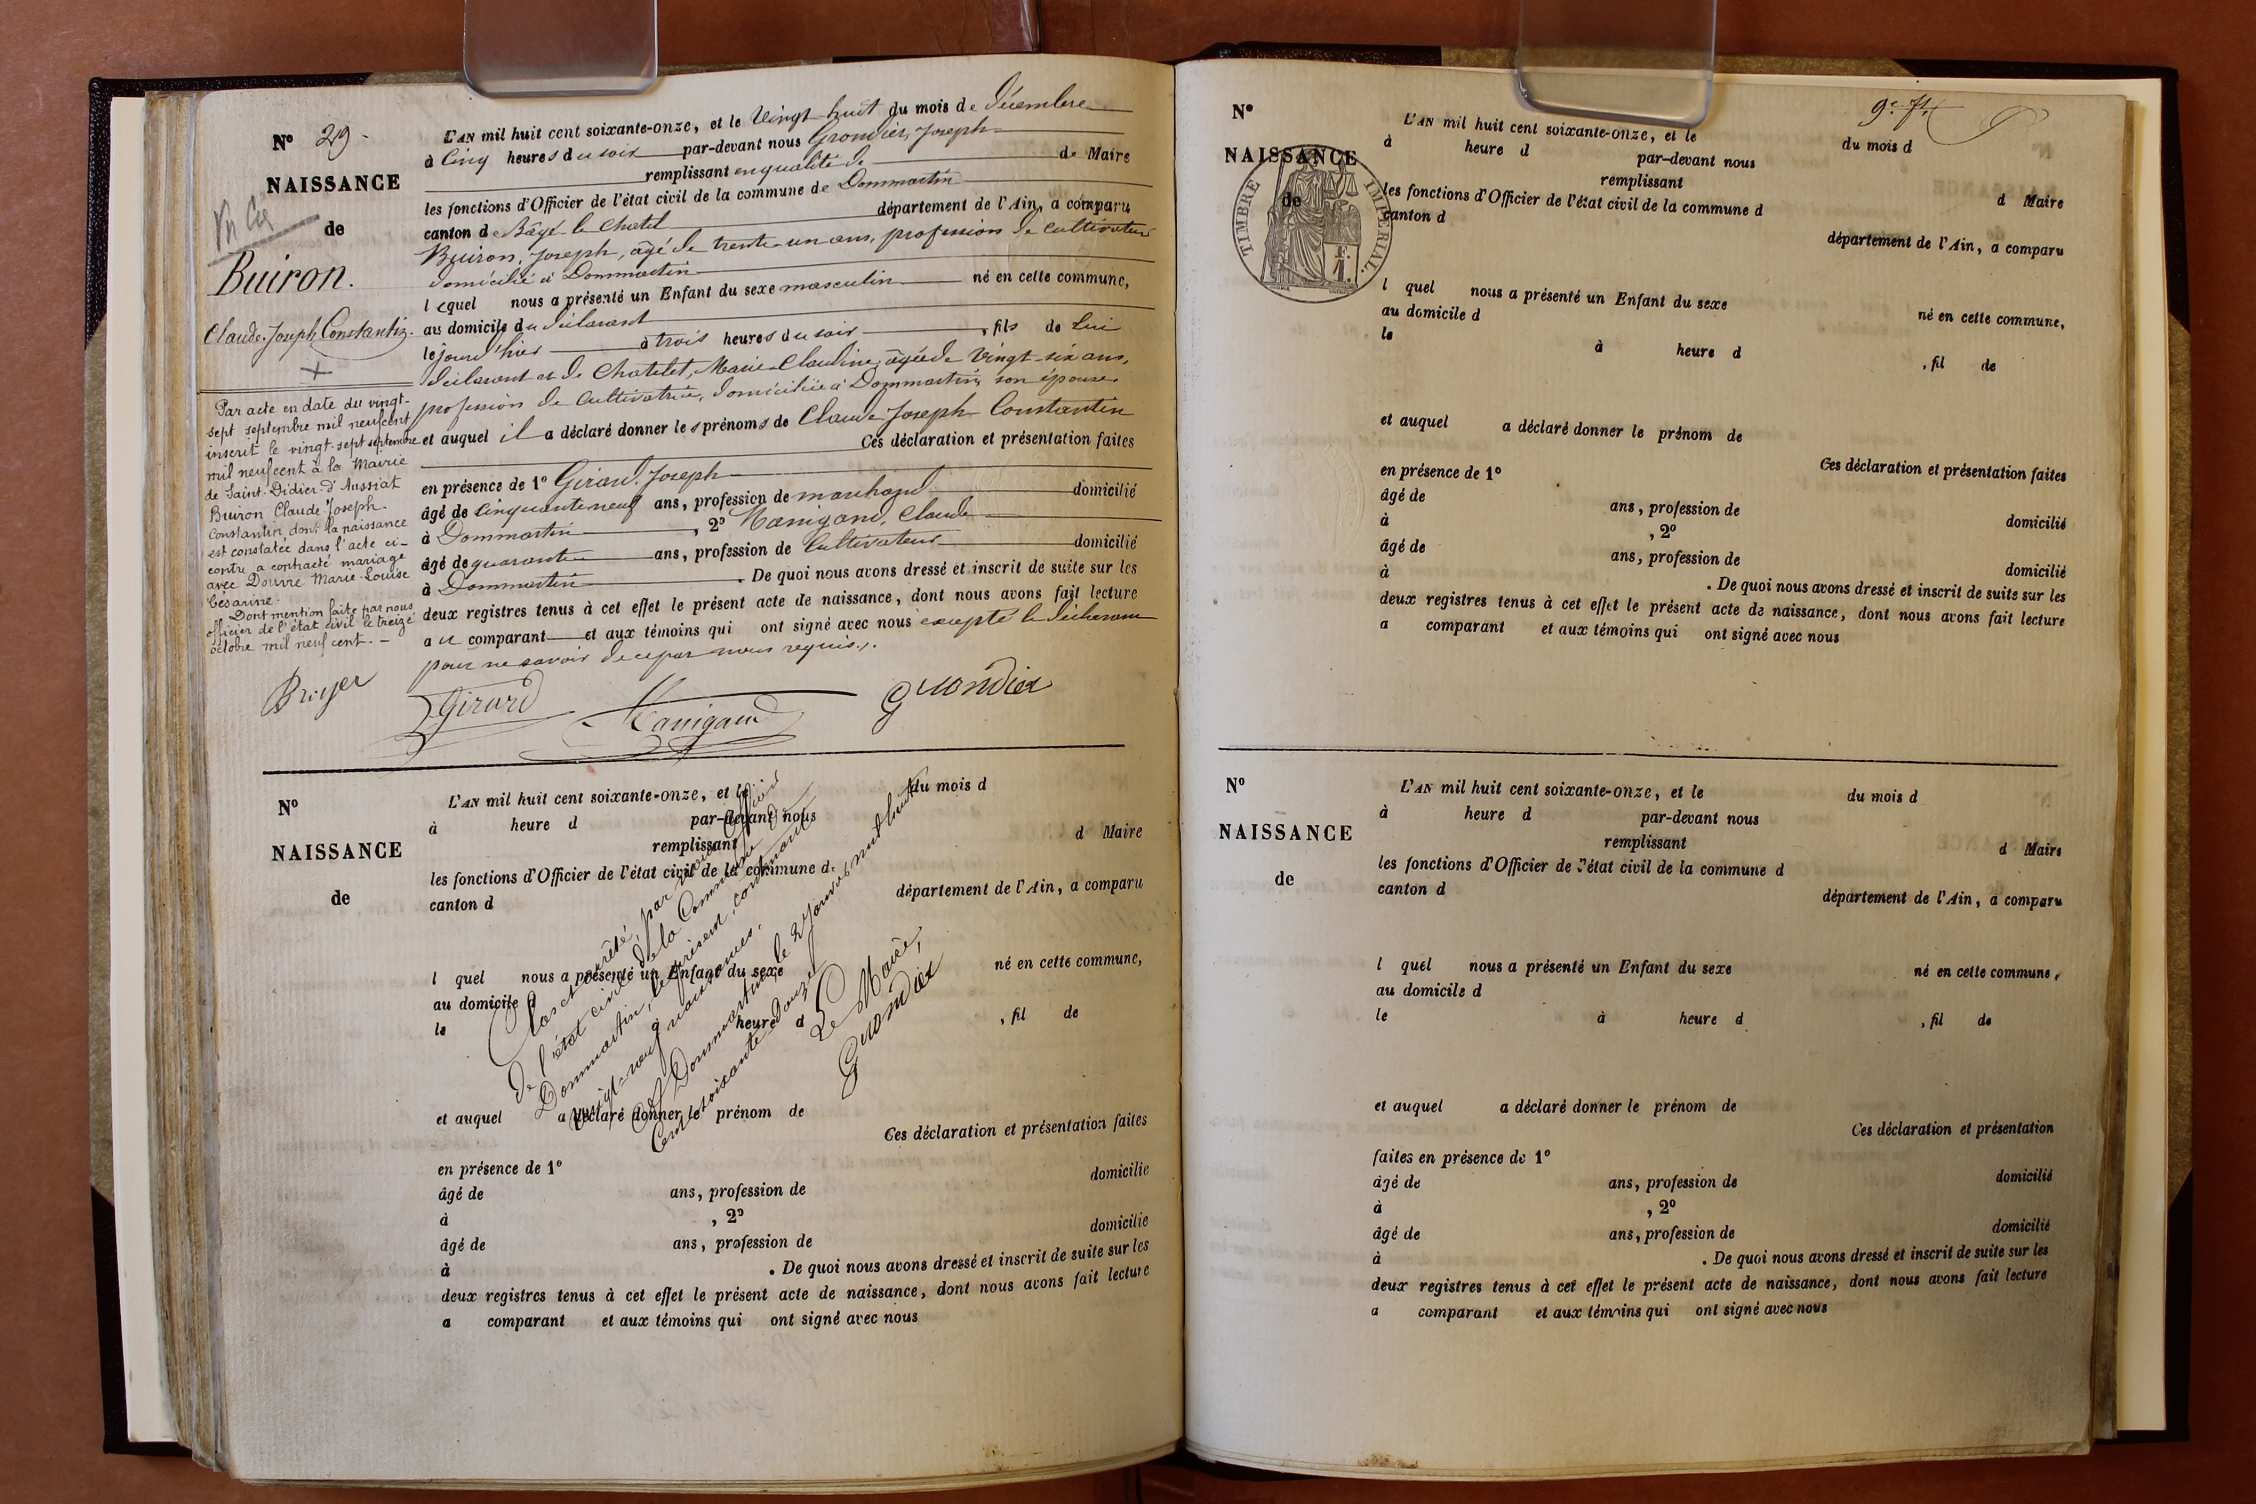 N° 29.
NAISSANCE
de
Buiron.
Claude Joseph Constantin.
Par acte en date du vingt-
sept septembre mil neuf cent
inscrit le vingt-sept septembre
mil neuf cent à la Mairie
de Saint-Didier-d'Aussiat
Buiron Claude Joseph
Constantin dont la naissance
est constatée dans l'acte ci-
contre a contracté mariage
avec Douvre Marie-Louise
Césarine.
Dont mention faite par nous
officier de l'état civil le treize
octobre mil neuf cent. —
L'AN mil huit cent soixante-onze, et le Vingt huit du mois de Décembre
à Cinq heures du soir par-devant nous Grondier, Joseph
remplissant en qualité de de Maire
les fonctions d'Officier de l'état civil de la commune de Dommartin
canton de Bâgé le Chatel département de l'Ain, a comparu
Buiron, Joseph, âgé de trente-un ans, profession de cultivateur
domicilié à Dommartin
lequel nous a présenté un Enfant du sexe masculin né en cette commune,
au domicile du déclarant
le jour d'hier à trois heures du soir, fils de lui
déclarant et de Chatelet, Marie-Claudine, âgée de Vingt-six ans,
profession de Cultivatrice, domiciliée à Dommartin, son épouse.
et auquel il a déclaré donner les prénoms de Claude Joseph Constantin
Ces déclaration et présentation faites
en présence de 1° Girard, Joseph
âgé de cinquante neuf ans, profession de marchand domicilié
à Dommartin, 2° Manigand, Claude
âgé de quarante ans, profession de Cultivateur domicilié
à Dommartin. De quoi nous avons dressé et inscrit de suite sur les
deux registres tenus à cet effet le présent acte de naissance, dont nous avons fait lecture
au comparant et aux témoins qui ont signé avec nous excepté le déclarant
pour ne savoir de ce par nous requis.
Broyer Girard Manigand Grondier
N°
NAISSANCE
de
L'AN mil huit cent soixante-onze, et le du mois d
à heure d par-devant nous
remplissant d Maire
les fonctions d'Officier de l'état civil de la commune d
canton d département de l'Ain, a comparu
l quel nous a présenté un Enfant du sexe né en cette commune,
au domicile d
le heure d , fil de
et auquel a déclaré donner le prénom de
Ces déclaration et présentation faites
en présence de 1°
âgé de ans, profession de domicilié
à , 2°
âgé de ans, profession de domicilié
à . De quoi nous avons dressé et inscrit de suite sur les
deux registres tenus à cet effet le présent acte de naissance, dont nous avons fait lecture
a comparant et aux témoins qui ont signé avec nous
Clos et arrêté, par nous officier
de l'état civil de la Commune de
Dommartin, le présent, contenant
vingt-neuf naissances.
A Dommartin, le 2 Janvier mil huit
cent soixante douze
Le Maire,
Grondier
9e ft
N°
NAISSANCE
de
TIMBRE IMPÉRIAL.
L'AN mil huit cent soixante-onze, et le du mois d
à heure d par-devant nous
remplissant d Maire
les fonctions d'Officier de l'état civil de la commune d
canton d département de l'Ain, a comparu
l quel nous a présenté un Enfant du sexe né en cette commune,
au domicile d
le à heure d , fil de
et auquel a déclaré donner le prénom de
Ces déclaration et présentation faites
en présence de 1°
âgé de ans, profession de domicilié
à , 2°
âgé de ans, profession de domicilié
à . De quoi nous avons dressé et inscrit de suite sur les
deux registres tenus à cet effet le présent acte de naissance, dont nous avons fait lecture
a comparant et aux témoins qui ont signé avec nous
N°
NAISSANCE
de
L'AN mil huit cent soixante-onze, et le du mois d
à heure d par-devant nous
remplissant d Maire
les fonctions d'Officier de l'état civil de la commune d
canton d département de l'Ain, a comparu
l quel nous a présenté un Enfant du sexe né en cette commune,
au domicile d
le à heure d , fil de
et auquel a déclaré donner le prénom de
Ces déclaration et présentation
faites en présence de 1°
âgé de ans, profession de domicilié
à , 2°
âgé de ans, profession de domicilié
à . De quoi nous avons dressé et inscrit de suite sur les
deux registres tenus à cet effet le présent acte de naissance, dont nous avons fait lecture
a comparant et aux témoins qui ont signé avec nous